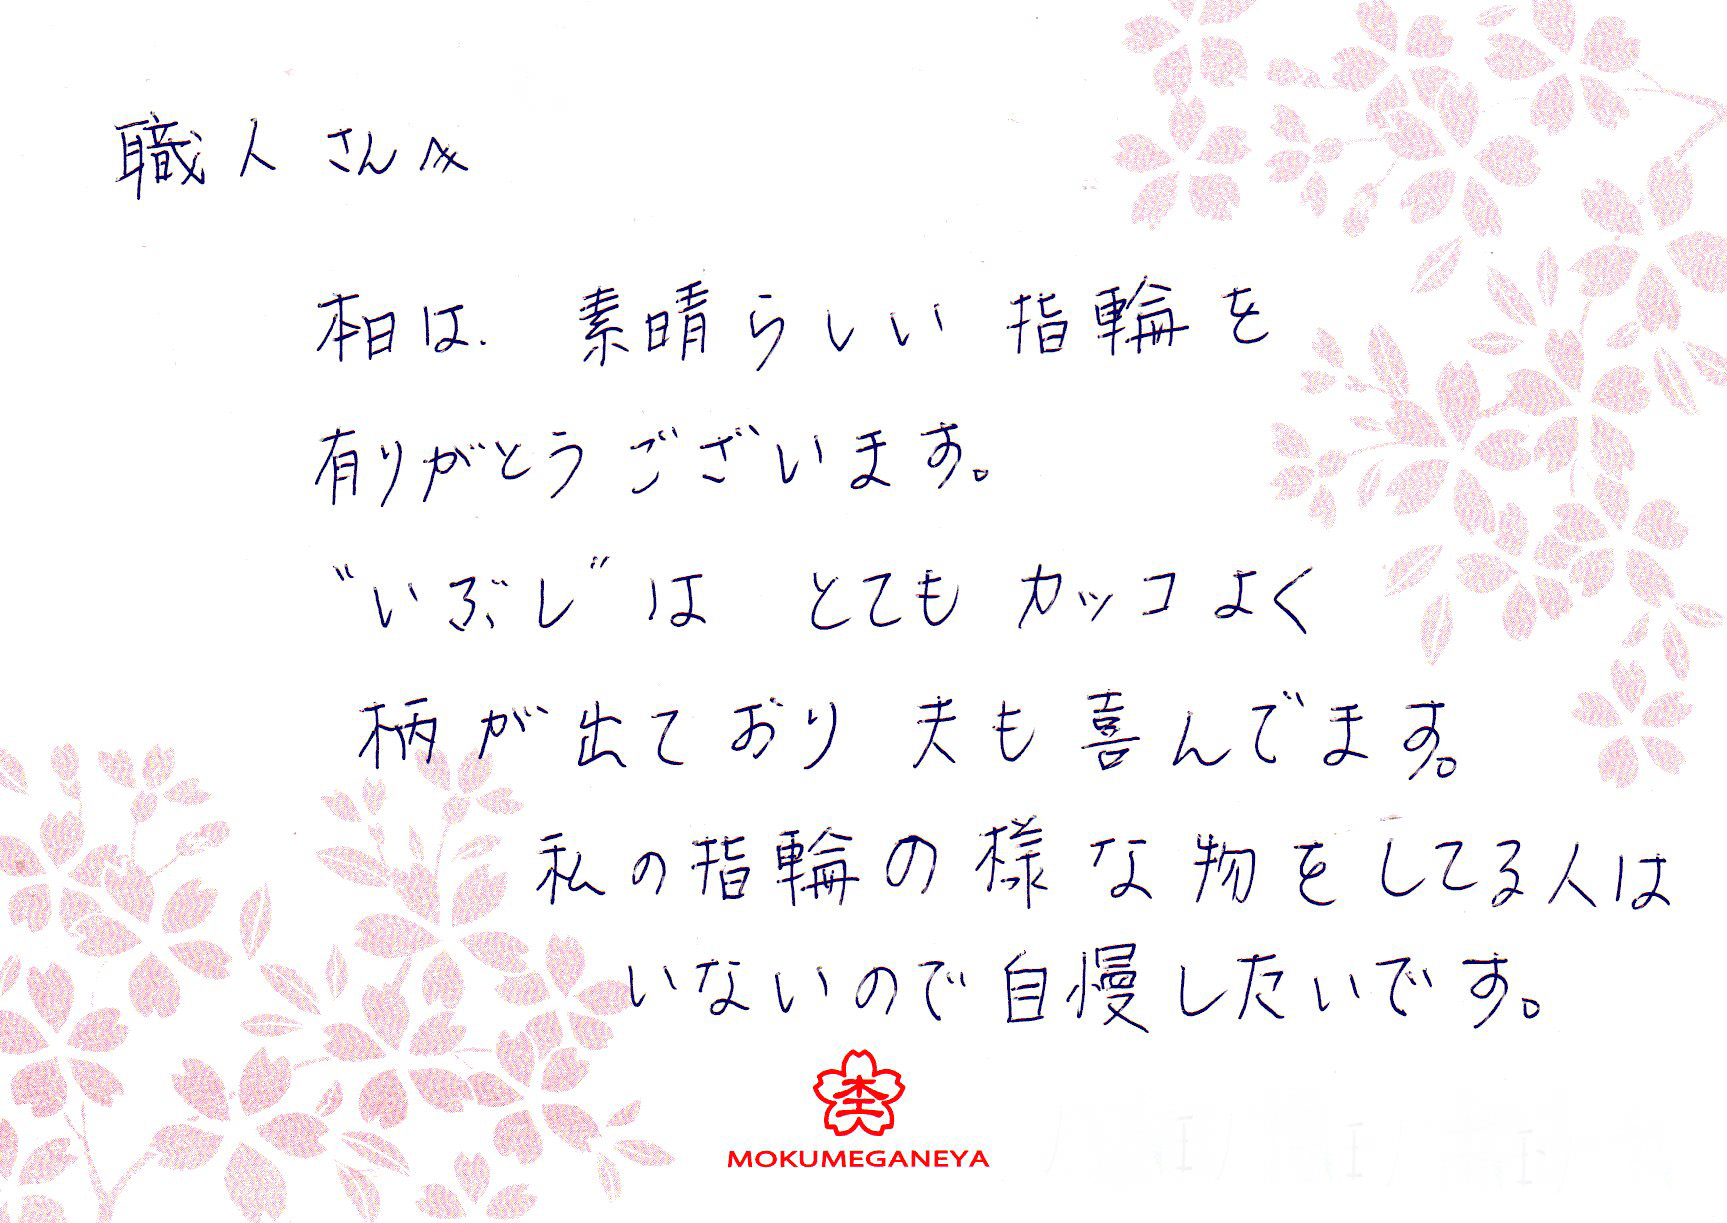 職人さんへ
本日は、素晴らしい指輪を
有りがとうございます。
"いぶし"は とても カッコよく
柄が出ており 夫も喜んでます。
私の指輪の様な物をしてる人は
いないので自慢したいです。
MOKUMEGANEYA